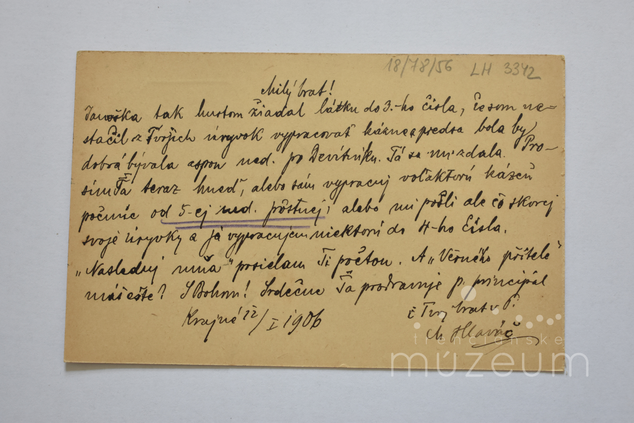 18/78/56 LH 3342
Milý brat!
Janoška tak hurtom žiadal látku do 3-ho čísla, že som ne-
stačil z Tvojich úryvok vypracovať kázne a predsa bola by
dobrá bývala aspoň ned. po Devítniku. Tá sa mi zdala. Pro-
sím Ťa teraz hneď, alebo sám vypracuj voľaktorú kázeň
počnúc od 5-ej ned. pôstnej, alebo mi pošli ale čo skorej
svoje úryvky a já vypracujem niektorú do 4-ho čísla.
„Nasleduj mňa" posielam Ti počtom. A „Verného přítele"
máš ešte? S Bohom! Srdečne Ťa pozdravuje p. principál
Krajné 12/I 1906 i Tvoj brat v P.
M. Hlaváč
literárne
múzeum